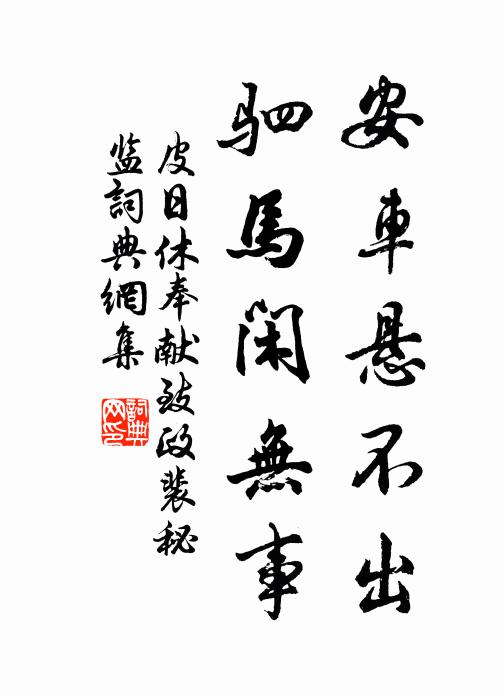 安車悬不出
駟馬閑無事
皮日休奉献致政裴秘
监詞典網集
詞典
网印